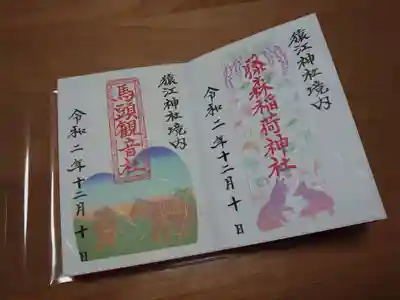 猿江神社境内
藤森稲荷神社
令和二年十二月十日
猿江神社境内
馬頭観音社
令和二年十二月十日